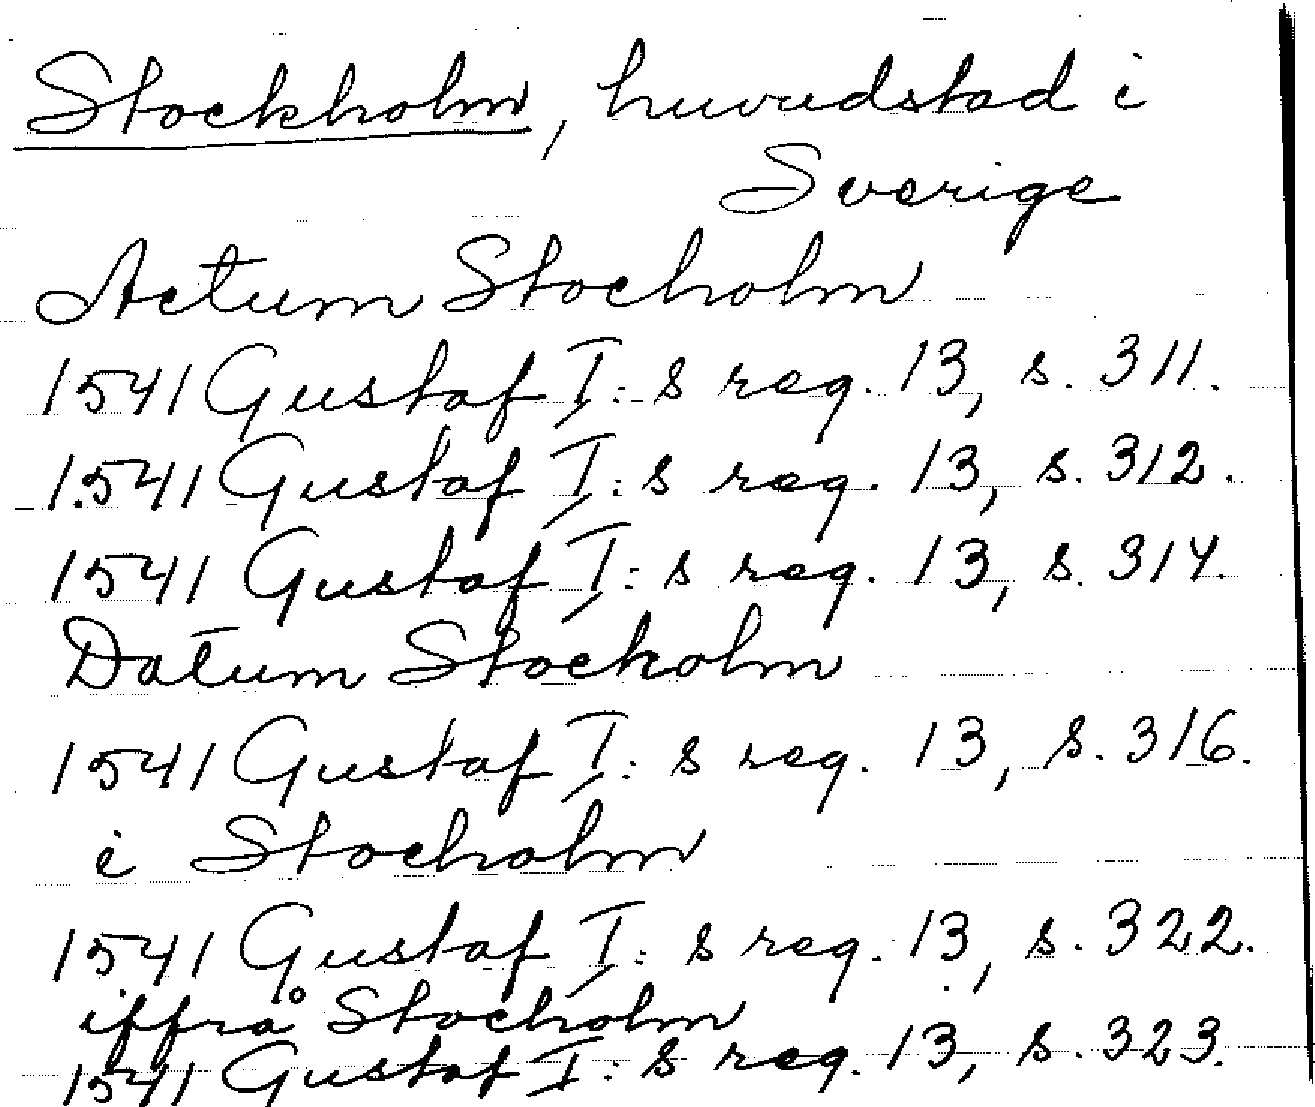 Stockholm, huvudstad i
Sverige
Actum Stocholm
1541 Gustaf I:s reg. 13, s. 311.
1541 Gustaf I:s reg. 13, s. 312.
1541 Gustaf I:s reg. 13, s. 314.
Datum Stockolm
1541 Gustaf I:s reg. 13, s. 316.
i Stocholm
1541 Gustaf I:s reg. 13, s. 322.
iffrå Stocholm
1541 Gustaf I:s reg. 13, s. 323.